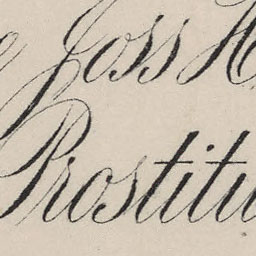 e Joss H
Prostitu